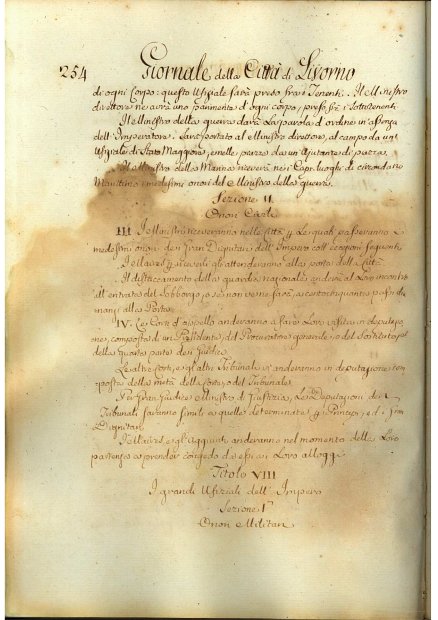 254 Giornale della Città di Livorno
di ogni Corpo; questo Ufiziale sarà preso fra i Tenenti. Il Ministro
direttore ne avrà uno parimente d'ogni corpo, preso fra i Sottotenenti
Il Ministro della guerra darà La parola d'ordine in assenza
dell'Imperatore. Sarà portato al Ministro direttore, al campo da un
Ufiziale di Stato Maggiore, e nelle piazze da un Ajutante di piazza.
Il Ministro della Marina riceverà ne i Capi luoghi di circondario
Marittimo i medesimi onori del Ministro della guerra.
Sezione II
Onori Civili
III. I Ministri riceveranno nelle Città p. Le quali passeranno i
medesimi onori de i Gran Dignitari dell'Impero coll'eccezioni seguenti.
I Maires p. riceverli gli attenderanno alla porta della Città.
Il distaccamento della guardia nazionale anderà al Loro incontro
all'entrata del Sobborgo, o se non ve ne sarà, a centocinquanta passi di
manzi alla Porta.
IV. Le Corti d'appello anderanno a farle Loro visita in deputazio
ne, composta d'un Presidente, del Procuratore generale, o del Sostituto, e
della quarta parte de i Giudici.
Le altre Corti, e gli altri Tribunali vi anderanno in deputazione com
posta della metà della Corte, o del Tribunale.
P. il Gran Giudice Ministro di Giustizia, Le Deputazioni dei
Tribunali saranno simili a quelle determinate p. i Principi, e i Gran
Dignitari.
I Maires, e gli Aggiunti anderanno nel momento della Loro
partenza a prender congedo da essi a i Loro alloggi.
Titolo VIII
I grandi Ufiziali dell'Impero
Sezione I.a
Onori Militari